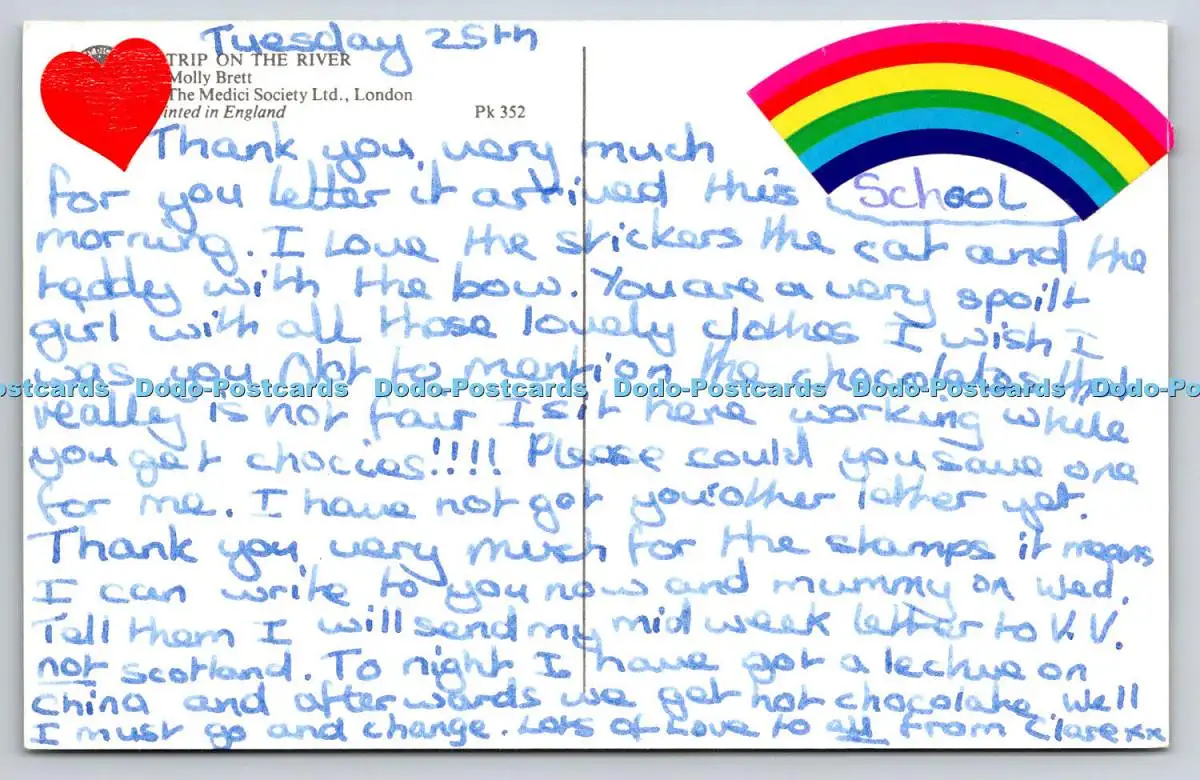 Tuesday 25th
TRIP ON THE RIVER
Molly Brett
The Medici Society Ltd., London
inted in England Pk 352
Thank you very much
for you letter it arrived this School
morning. I Love the stickers the cat and the
teddy with the bow. You are a very spoilt
girl with all those lovely clothes I wish I
was you Not to mention the chocolates that
Dodo-Postcards Dodo-Postcards Dodo-Postcards Dodo-Postcards Dodo-Postcards
really is not fair I sit here working while
you get choccies!!!! Please could you save one
for me. I have not got your other letter yet.
Thank you very much for the stamps it means
I can write to you now and mummy on Wed.
Tell them I will send my mid week letter to V.V.
not scotland. To night I have got a lecture on
China and afterwords we get hot chocolate. Well
I must go and change. Lots of Love to all from Clare xx